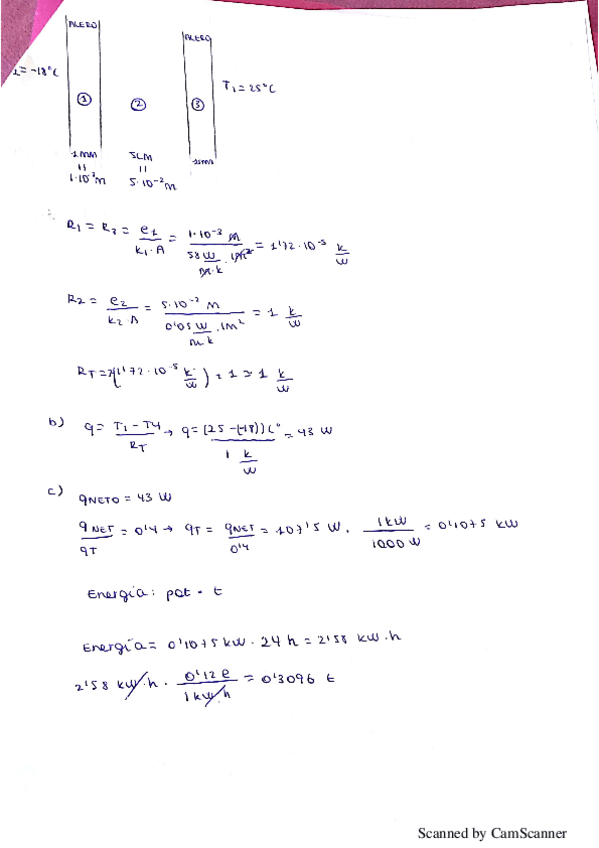 ACERO
ACERO
2 = -18°C
T1 = 25°C
1
2
3
1 mm
5cm
1mm
1·10⁻³m
5·10⁻² m
R1 = R3 = e1 / k1·A = 1·10⁻³ m / 58 W/m·k · 1m² = 1'72·10⁻⁵ k/W
R2 = e2 / k2·A = 5·10⁻² m / 0'05 W/m k · 1m² = 1 k/W
RT = 2(1'72·10⁻⁵ k/W) + 1 ≃ 1 k/W
b) q = T1 - T4 / RT → q = (25 -(-18))C° / 1 k/W = 43 W
c) qNETO = 43 W
qNET / qT = 0'4 → qT = qNET / 0'4 = 107'5 W · 1kW / 1000 W = 0'1075 kW
Energía: pot · t
Energía = 0'1075 kW · 24 h = 2'58 kW·h
2'58 kW·h · 0'12 € / 1 kW·h = 0'3096 €
Scanned by CamScanner